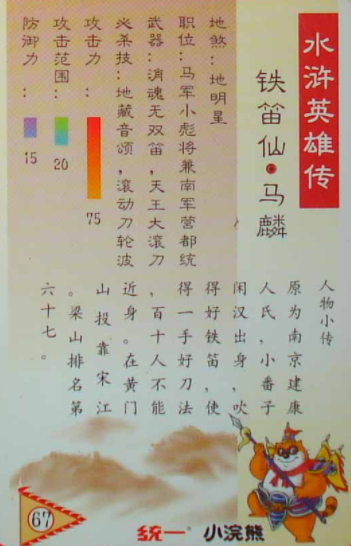 水浒英雄传
铁笛仙·马麟
地煞：地明星
职位：马军小彪将兼南军营都统
武器：消魂无双笛，天王大滚刀
必杀技：地藏音颂，滚动刀轮波
攻击力：
75
攻击范围：
20
防御力：
15
人物小传
原为南京建康
人氏，小番子
闲汉出身，吹
得好铁笛，使
得一手好刀法
，百十人不能
近身。在黄门
山投靠宋江
。梁山排名第
六十七。
67
统一® 小浣熊